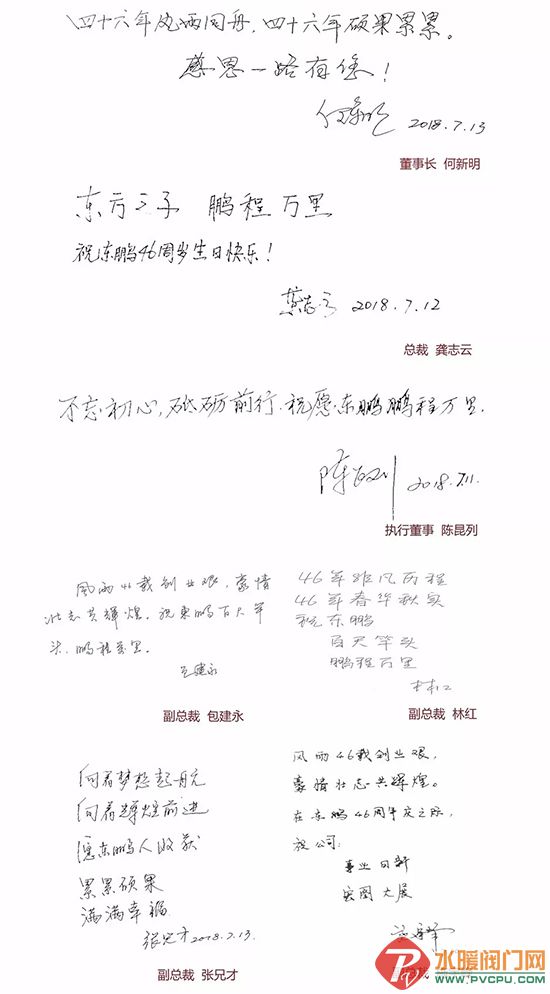 四十六年风雨同舟，四十六年硕果累累。
感恩一路有您！
2018.7.13
董事长 何新明
东方之子 鹏程万里
祝东鹏46周岁生日快乐！
龚志云 2018.7.12
总裁 龚志云
不忘初心，砥砺前行.祝愿东鹏鹏程万里.
陈昆列 2018.7.11.
执行董事 陈昆列
风雨46载创业艰，豪情
壮志共辉煌。祝东鹏百尺竿
头，鹏程万里。
包建永
副总裁 包建永
46年非凡历程
46年春华秋实
祝东鹏
百尺竿头
鹏程万里
林红
副总裁 林红
向着梦想起航
向着辉煌前进
愿东鹏人收获
累累硕果
满满幸福
张兄才 2018.7.13.
副总裁 张兄才
风雨46载创业艰，
豪情壮志共辉煌。
在东鹏46周年庆之际，
祝公司：
事业日新
宏图大展
水暖阀门网
WWW.PVCPU.COM